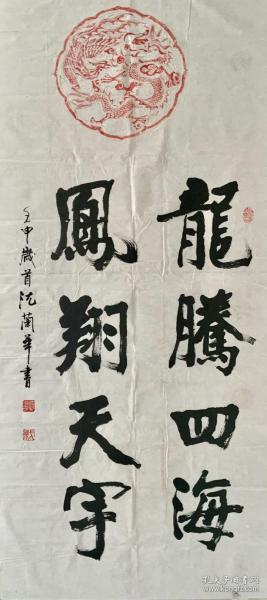 龍騰四海
鳳翔天宇
壬申歲首沈蘭華書
孔夫子旧书网